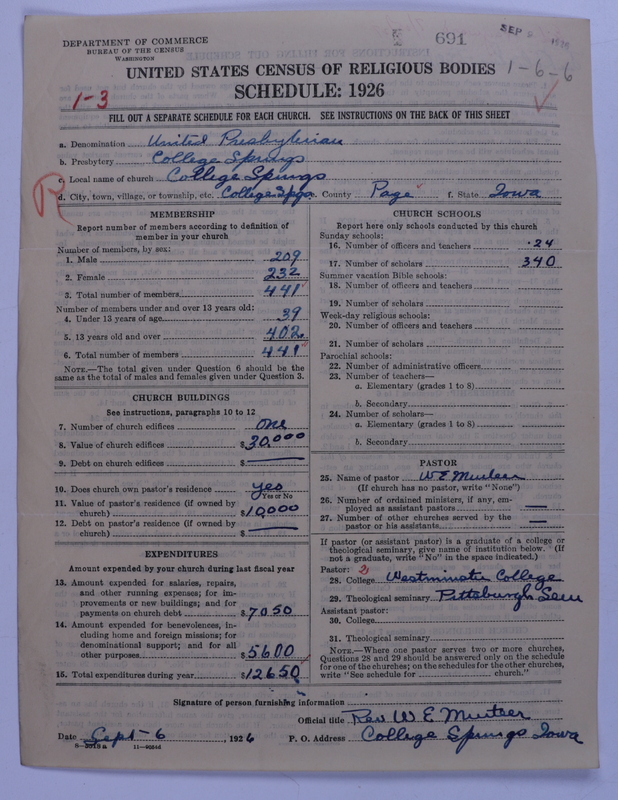 DEPARTMENT OF COMMERCE
BUREAU OF THE CENSUS
WASHINGTON
691
SEP 9 1926
UNITED STATES CENSUS OF RELIGIOUS BODIES
1-6-6
SCHEDULE: 1926
1-3
FILL OUT A SEPARATE SCHEDULE FOR EACH CHURCH. SEE INSTRUCTIONS ON THE BACK OF THIS SHEET
a. Denomination United Presbyterian
b. Presbytery College Springs
c. Local name of church College Springs
R
d. City, town, village, or township, etc. College Spgs e. County Page f. State Iowa
MEMBERSHIP
Report number of members according to definition of
member in your church
Number of members, by sex:
1. Male 209
2. Female 232
3. Total number of members 441
Number of members under and over 13 years old:
4. Under 13 years of age 39
5. 13 years old and over 402
6. Total number of members 441
NOTE.—The total given under Question 6 should be
same as the total of males and females given under Question 3.
CHURCH BUILDINGS
See instructions, paragraphs 10 to 12
7. Number of church edifices one
8. Value of church edifices $30,000
9. Debt on church edifices $ —
10. Does church own pastor's residence yes
Yes or No
11. Value of pastor's residence (if owned by
church) $10,000
12. Debt on pastor's residence (if owned by
church) $ —
EXPENDITURES
Amount expended by your church during last fiscal year
13. Amount expended for salaries, repairs,
and other running expenses; for im-
provements or new buildings; and for
payments on church debt $7050
14. Amount expended for benevolences, in-
cluding home and foreign missions; for
denominational support; and for all
other purposes $5600
15. Total expenditures during year $12650
CHURCH SCHOOLS
Report here only schools conducted by this church
Sunday schools:
16. Number of officers and teachers 24
17. Number of scholars 340
Summer vacation Bible schools:
18. Number of officers and teachers
19. Number of scholars
Week-day religious schools:
20. Number of officers and teachers
21. Number of scholars
Parochial schools:
22. Number of administrative officers
23. Number of teachers—
a. Elementary (grades 1 to 8)
b. Secondary
24. Number of scholars—
a. Elementary (grades 1 to 8)
b. Secondary
PASTOR
25. Name of pastor W E
(If church has no pastor, write "None")
26. Number of ordained ministers, if any, em-
ployed as assistant pastors —
27. Number of other churches served by the
pastor or his assistants —
If pastor (or assistant pastor) is a graduate of a college or
theological seminary, give name of institution below. (If
not a graduate, write "No" in the space indicated.)
Pastor: 2
28. College Westminster College
29. Theological seminary Pittsburgh Sem
Assistant pastor:
30. College
31. Theological seminary
NOTE.—Where one pastor serves two or more churches,
Questions 28 and 29 should be answered only on the schedule
for one of the churches; on the schedules for the other churches,
write "See schedule for church."
Signature of person furnishing information
Official title Rev W E
Date Sept-6, 1926 P. O. Address College Springs Iowa
8-2018a 11-9054d